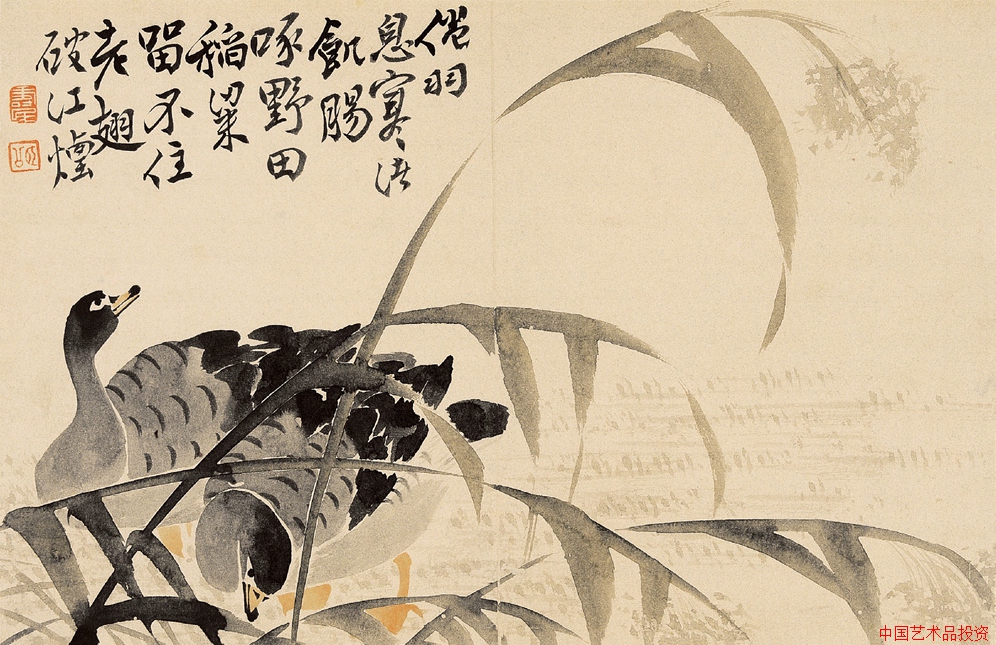 倦羽
息寒渚
飢腸
啄野田
稻粱
留不住
老翅
破江煙
中国艺术品投资